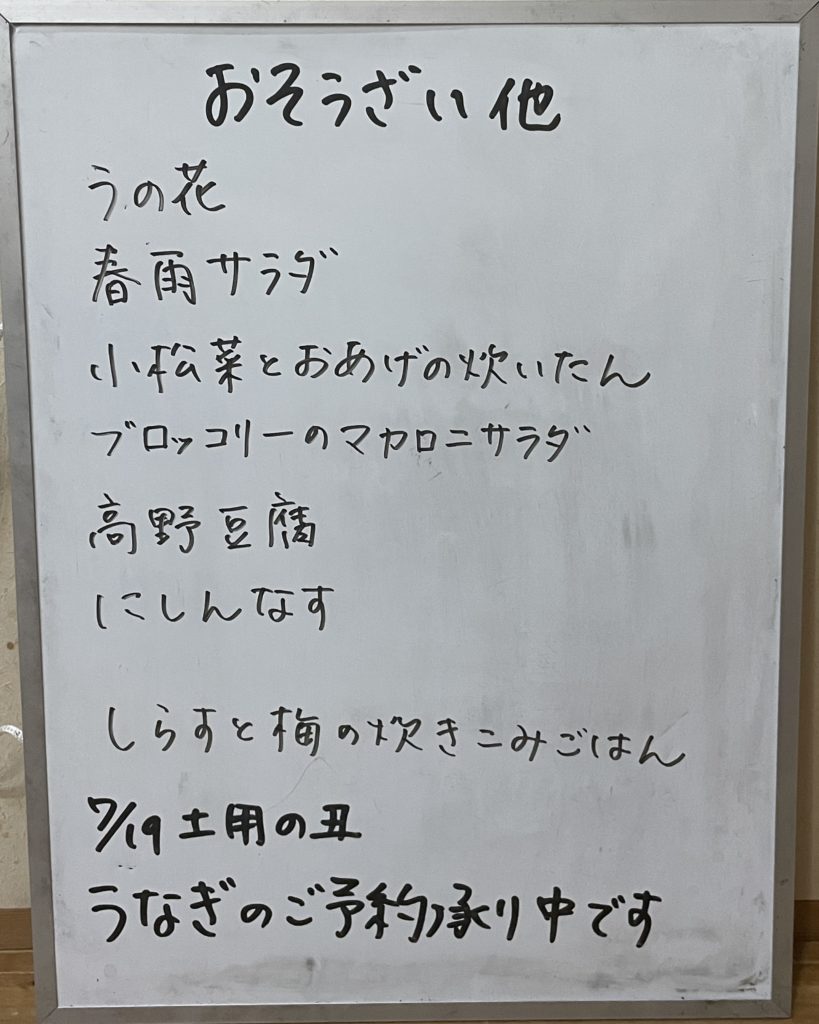 おそうざい他
うの花
春雨サラダ
小松菜とおあげの炊いたん
ブロッコリーのマカロニサラダ
高野豆腐
にしんなす
しらすと梅の炊きこみごはん
7/19土用の丑
うなぎのご予約承り中です